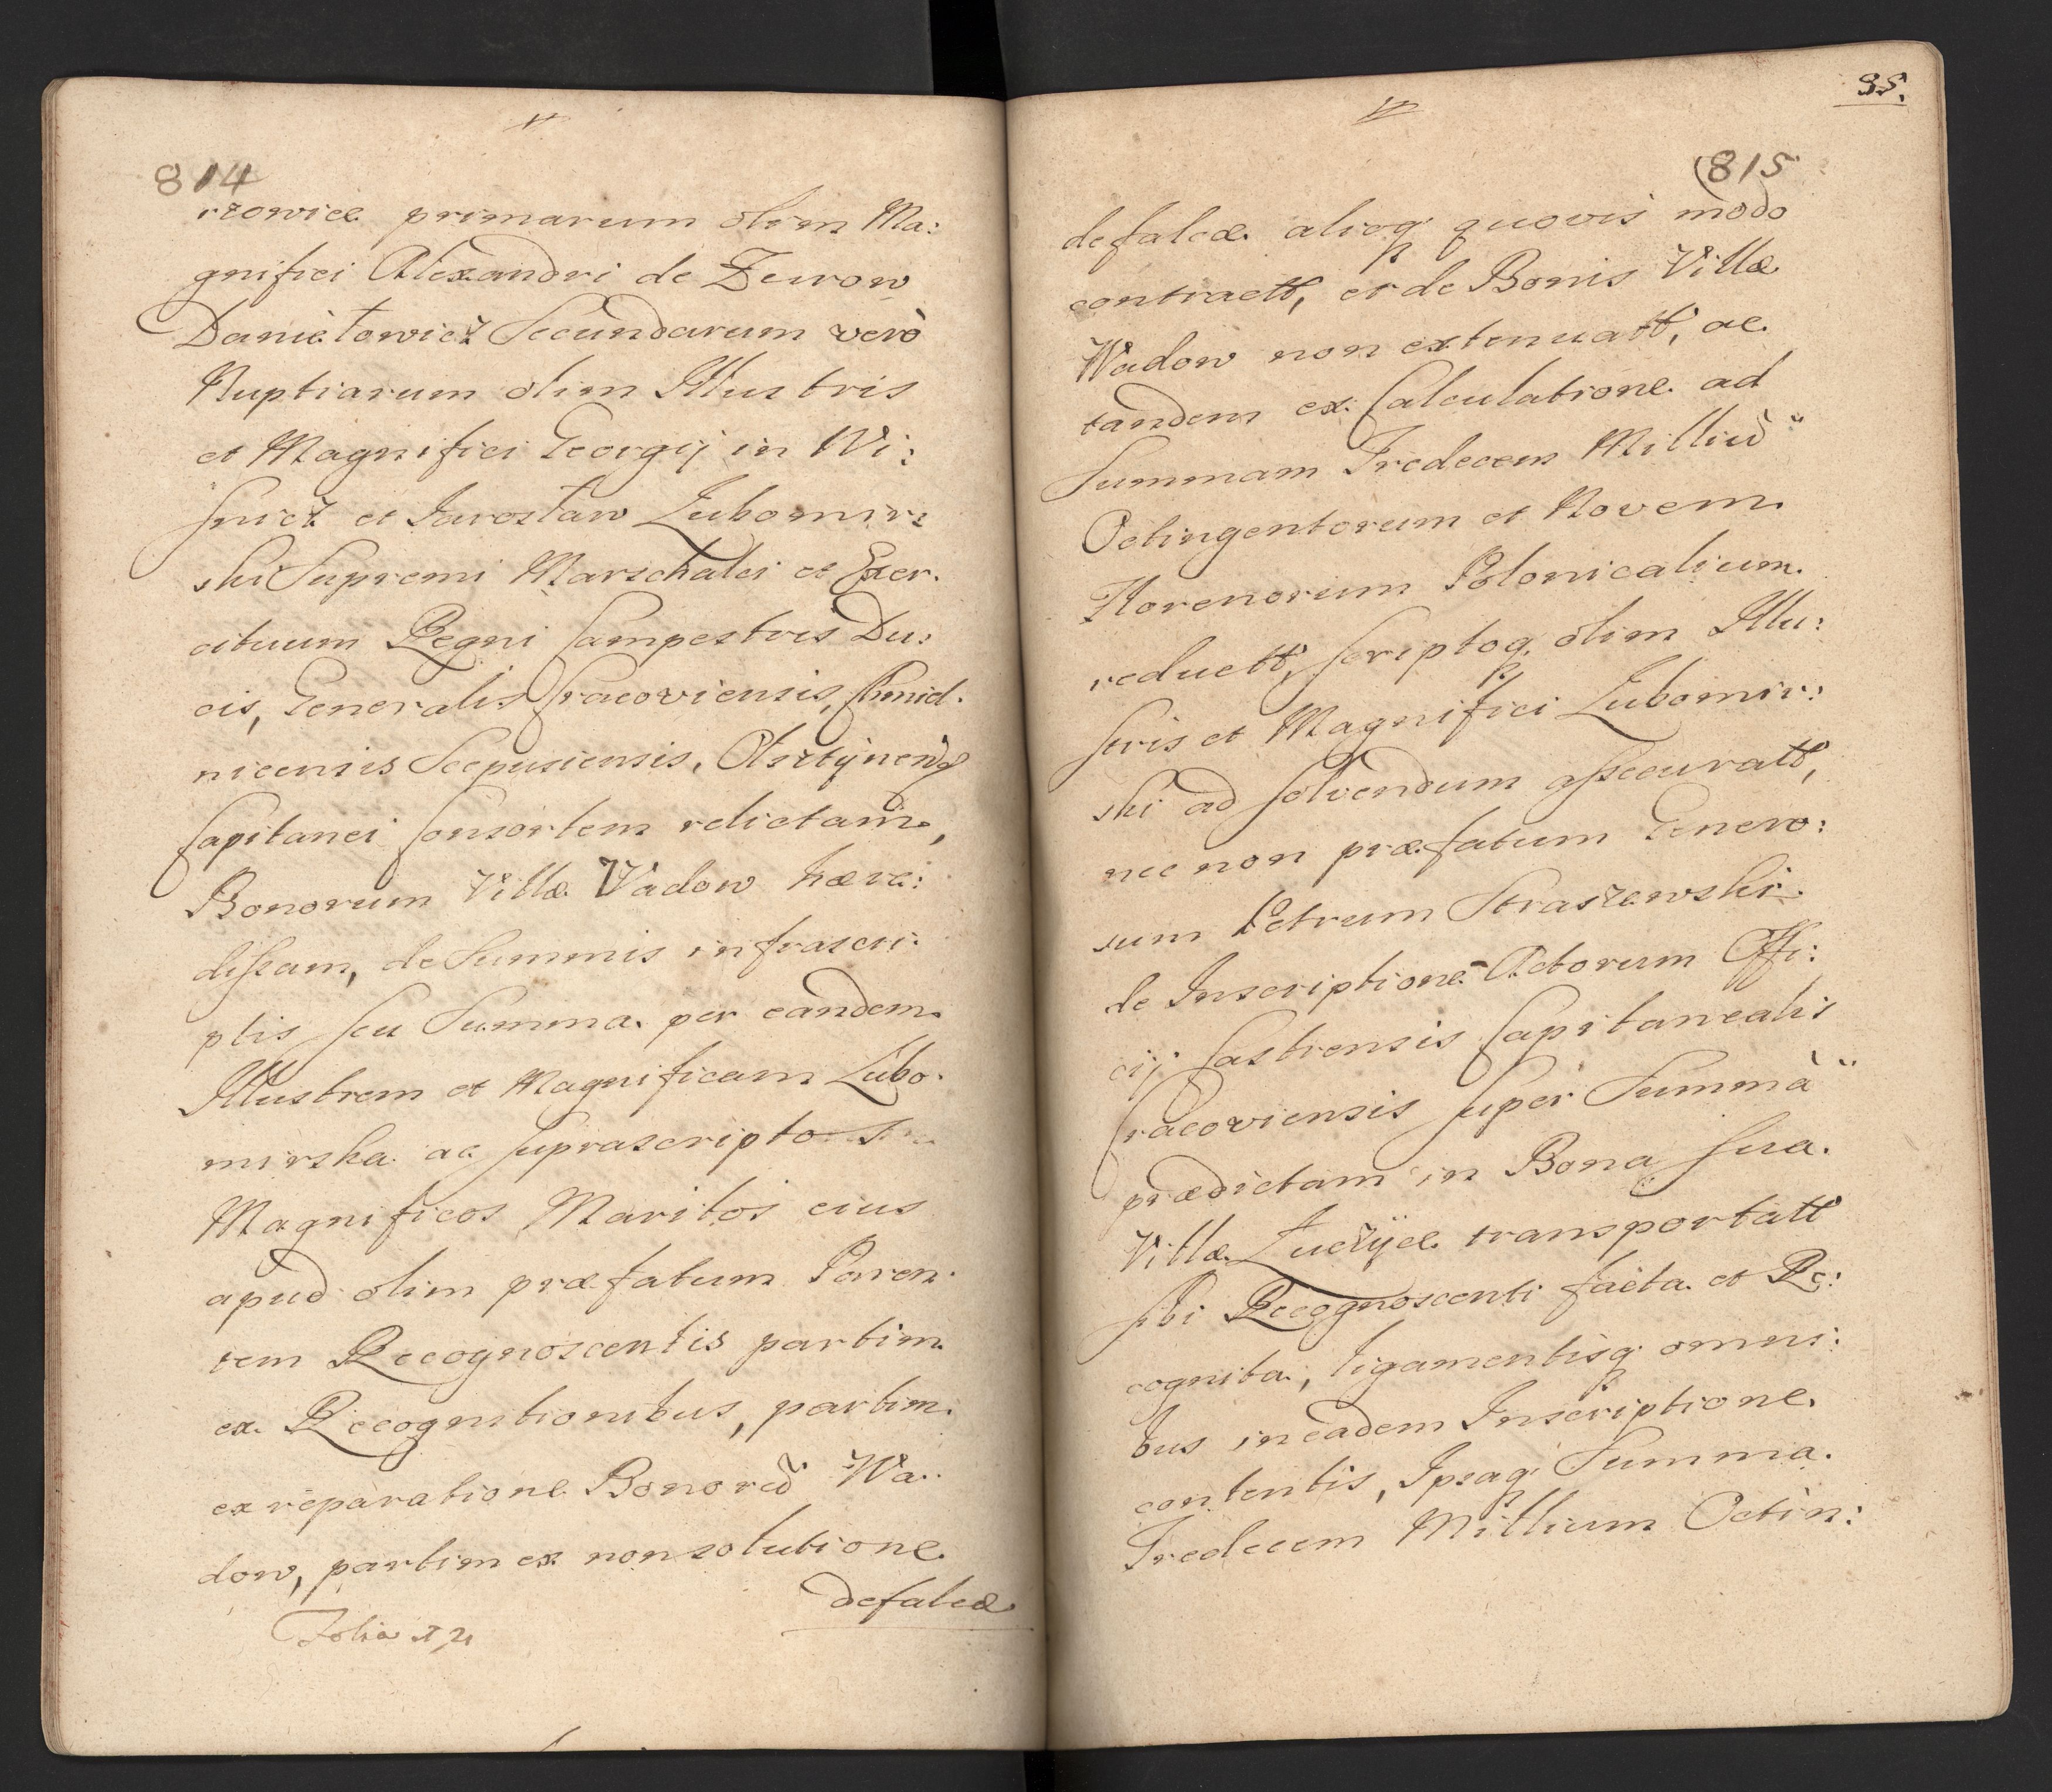 814
rzowicæ primarum olim Ma:
gnifici Alexandri de Zurow
Daniełowicz Secundarum verò
Nuptiarum olim Illustris
et Magnifici Georgij in Wi:
snicz et Jarosław Lubomir:
ski Supremi Marschalci et Exer.
cituum Regni Campestris Du:
cis, Generalis Cracoviensis, Chmiel.
nicensis Scepusiensis, Olsztÿnensq
Capitanei Consortem relictam,
Bonorum Villæ Wadow hære:
dissam, de Summis infrascri:
ptis seu Summa per eandem
Illustrem et Magnificam Lubo.
mirska ac suprascripto
Magnificos Maritos eius
apud olim præfatum Paren.
tem Recognoscentis partim
ex Recognitionibus, partim
ex reparatione Bonorũ Wa.
dow, partim ex non solutione
defalcæ
Folia
35.
815
defalcæ alioq quovis modo
contractt, et de Bonis Villæ
Wadow non extenuatt, ac
tandem ex Calculatione ad
Summam Tredecem Milliũ
Octingentorum et Novem
Florenorum Polonicalium
reductt, scriptoq olim Illu:
stris et Magnifici Lubomir:
ski ad solvendum assecuratt,
nec non præfatum Genero:
sum Petrum Straszewski
de Inscriptione Actorum Offi:
cij Castrensis Capitanealis
Cracoviensis super Summã
prædictam in Bona sua
Villæ Luczÿcæ transportatt
sibi Recognoscenti facta et Re:
cognita, ligamentisq omni:
bus in eadem Inscriptione
contentis, Ipsaq Summa
Tredecem Millium Octin: